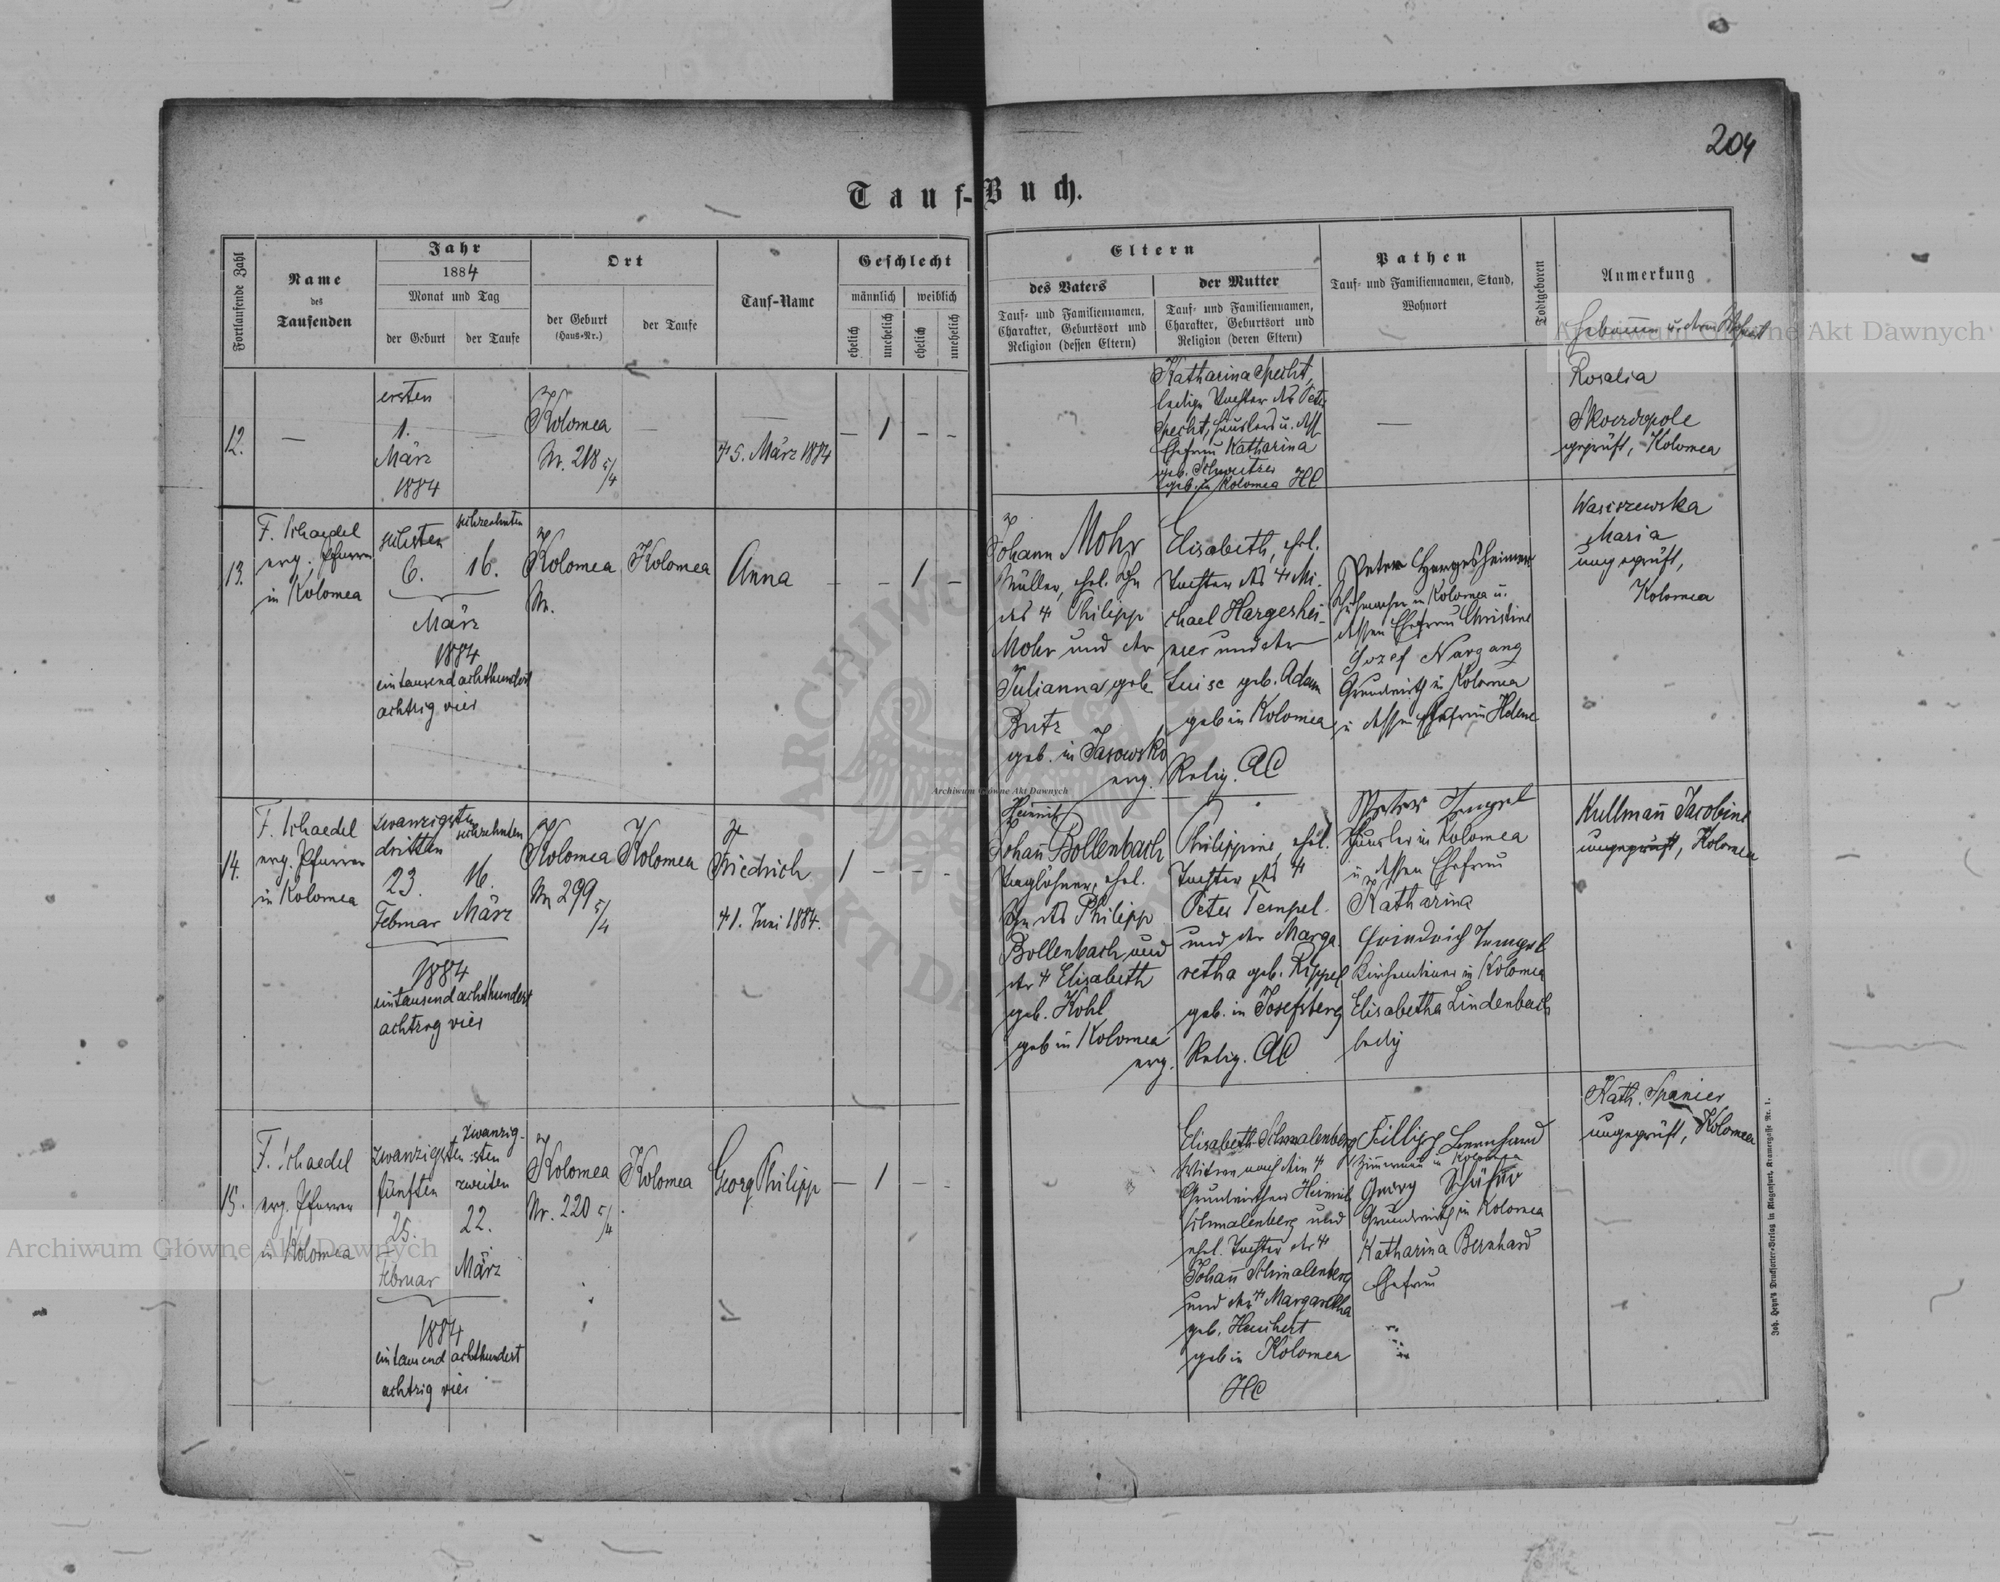 204
Tauf-Buch.
Fortlaufende Zahl
Name
des
Taufenden
Jahr
1884
Monat und Tag
der Geburt
der Taufe
Ort
der Geburt
(Haus-Nr.)
der Taufe
Tauf-Name
Geschlecht
männlich
weiblich
ehelich
unehelich
ehelich
unehelich
Eltern
des Vaters
Tauf- und Familiennamen,
Charakter, Geburtsort und
Religion (dessen Eltern)
der Mutter
Tauf- und Familiennamen,
Charakter, Geburtsort und
Religion (deren Eltern)
Pathen
Tauf- und Familiennamen, Stand,
Wohnort
Todtgeboren
Anmerkung
12.
—
ersten
1.
März
1884
Kolomea
Nr. 218 5/4
—
† 5. März 1884
— 1 – –
Katharina Specht,
ledige Tochter des Peter
Specht, Häuslers u. dess.
Ehefrau Katharina
geb. Schweitzer
geb. in Kolomea HC
—
Rosalia
Skoerdopole
geprüft, Kolomea
13.
F. Schaedel
evg. Pfarrer
in Kolomea
sechsten
6.
sechzehnten
16.
März
1884
eintausendachthundert
achtzig vier
Kolomea
Nr.
Kolomea
Anna
– – 1 –
Johann Mohr
Müller, ehel. Sohn
des † Philipp
Mohr und der
Julianna geb.
Butz
geb. in Jasowsko
evg. Relig. AC
Elisabeth, ehel.
Tochter des † Mi-
chael Hargeshei-
mer und der
Luise geb. Adam
geb in Kolomea
Peter Hargesheimer
Schuhmacher in Kolomea u.
dessen Ehefrau Christine
Jozef Nargang
Grundwirth in Kolomea
u dessen Ehefrau Helene
Wasiszewska
Maria
ungeprüft,
Kolomea
14.
F. Schaedel
evg. Pfarrer
in Kolomea
zwanzigsten
dritten
23.
Februar
sechzehnten
16.
März
1884
eintausend achthundert
achtzig vier
Kolomea
Nr 299 5/4
Kolomea
Friedrich
† 1. Juni 1884.
1 – – –
Heinrich
Johañ Bollenbach
Taglöhner, ehel.
Sohn des Philipp
Bollenbach und
der † Elisabeth
geb. Kohl
geb in Kolomea
evg. Relig. AC
Philippine, ehel.
Tochter des †
Peter Tempel
und der Marga-
retha geb. Rippel
geb. in Josefsberg
Peter Tempel
Häusler in Kolomea
u dessen Ehefrau
Katharina
Friedrich Tempel
Kirchendiener in Kolomea
Elisabetha Lindenbach
ledig
Kullmañ Jacobine
ungeprüft, Kolomea
15.
F. Schaedel
evg. Pfarrer
in Kolomea
zwanzigsten
fünften
25.
Februar
zwanzig-
sten
zweiten
22.
März
1884
eintausend achthundert
achtzig vier
Kolomea
Nr. 220 5/4
Kolomea
Georg Philipp
— 1 – –
Elisabeth Schmalenberg
Witwe nach dem †
Grundwirthen Heinrich
Schmalenberg und
ehel. Tochter des †
Johañ Schmalenberg
und der † Margaretha
geb.
geb in Kolomea
HC
Fillipp Bernhard
Zimmermañ in Kolomea
Georg Schäfer
Grundwirth in Kolomea
Katharina Bernhard
Ehefrau
Kath. Spanier
ungeprüft, Kolomea
Joh. Heyn's Drucksorten-Verlag in Klagenfurt, Kramergasse Nr. 1.
Archiwum Główne Akt Dawnych
Archiwum Główne Akt Dawnych
Archiwum Główne Akt Dawnych